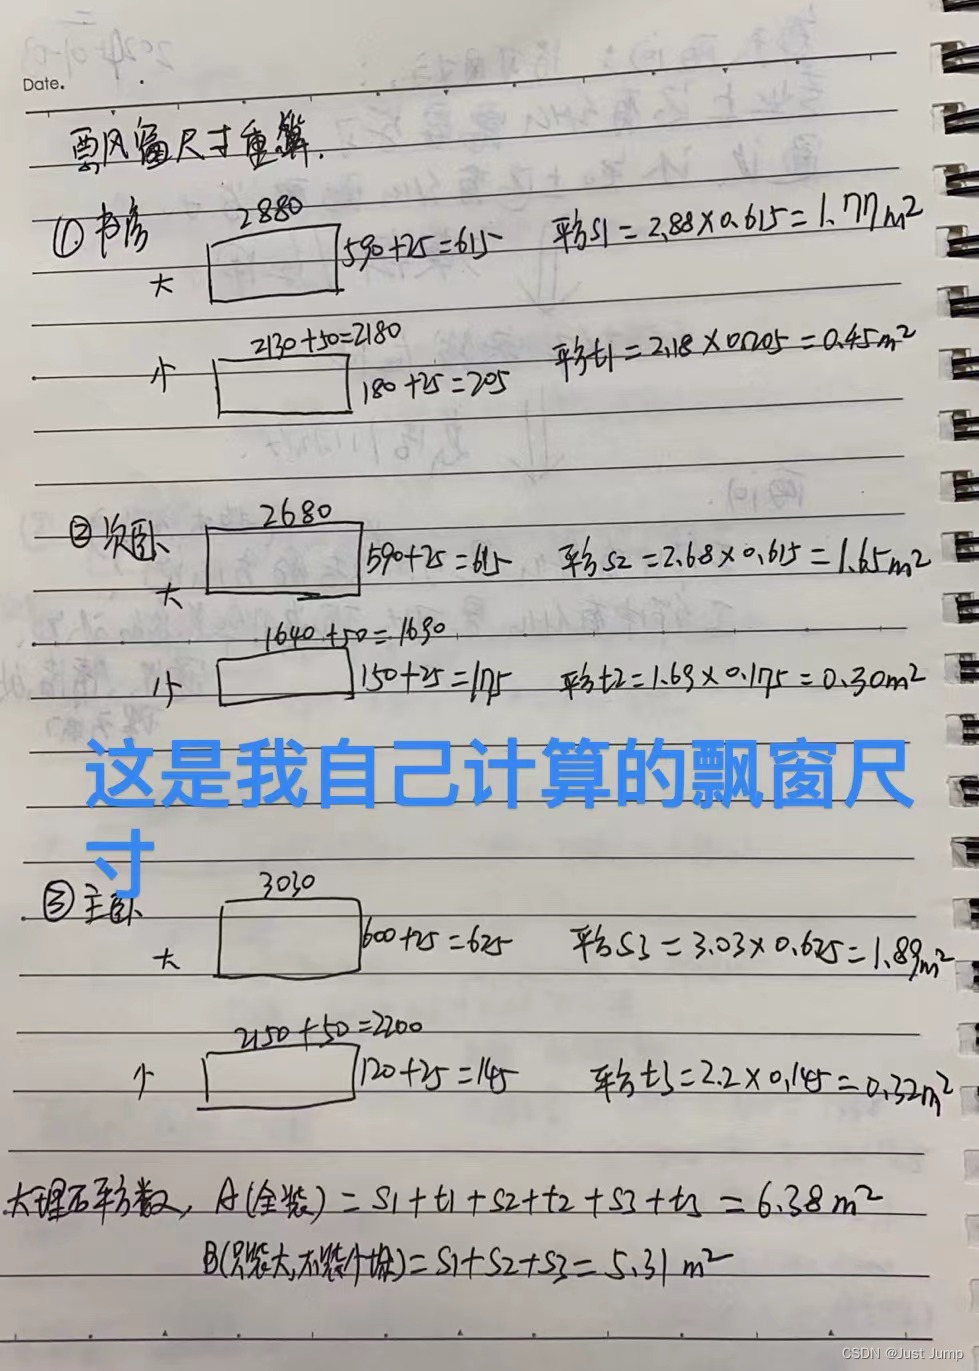 Date.
飘窗尺寸重算.
① 书房
2880
大
590+25=615
平方S1=2.88×0.615=1.77m²
2130+50=2180
小
180+25=205
平方t1=2.18×0.205=0.45m²
② 次卧
2680
大
590+25=615
平方S2=2.68×0.615=1.65m²
1640+50=1690
小
150+25=175
平方t2=1.69×0.175=0.30m²
这是我自己计算的飘窗尺
寸
③ 主卧
3030
大
600+25=625
平方S3=3.03×0.625=1.89m²
2150+50=2200
小
120+25=145
平方t3=2.2×0.145=0.32m²
大理石平方数, A(全装)=S1+t1+S2+t2+S3+t3=6.38m²
B(只装大,不装小块)=S1+S2+S3=5.31m²
CSDN @Just Jump